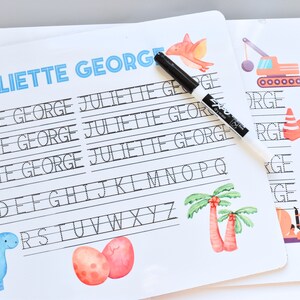 LIETTE GEORGE
E GEORGE JULIETTE GEORGE
E GEORGE JULIETTE GEORGE
E GEORGE JULIETTE GEORGE
D E F G H I J K L M N O P Q
R S T U V W X Y Z